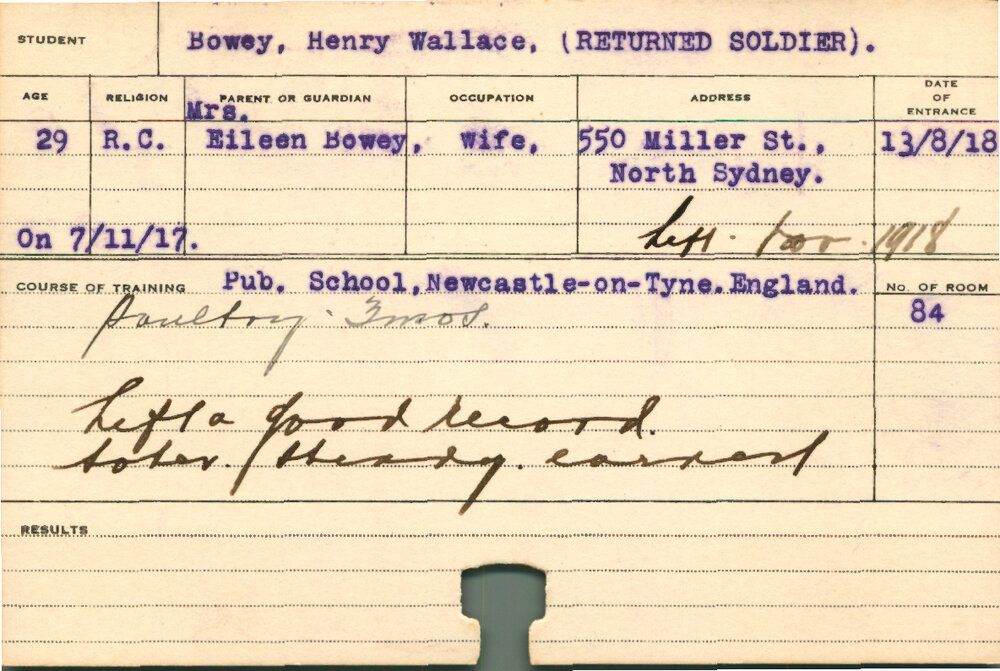 STUDENT Bowey, Henry Wallace, (RETURNED SOLDIER).
AGE RELIGION PARENT OR GUARDIAN OCCUPATION ADDRESS DATE OF ENTRANCE
Mrs.
29 R.C. Eileen Bowey, Wife, 550 Miller St., 13/8/18
North Sydney.
On 7/11/17. Left. Nov. 1918
COURSE OF TRAINING Pub. School, Newcastle-on-Tyne. England. No. OF ROOM
Poultry. 3mos. 84
Left a good record.
sober. steady. earnest
RESULTS